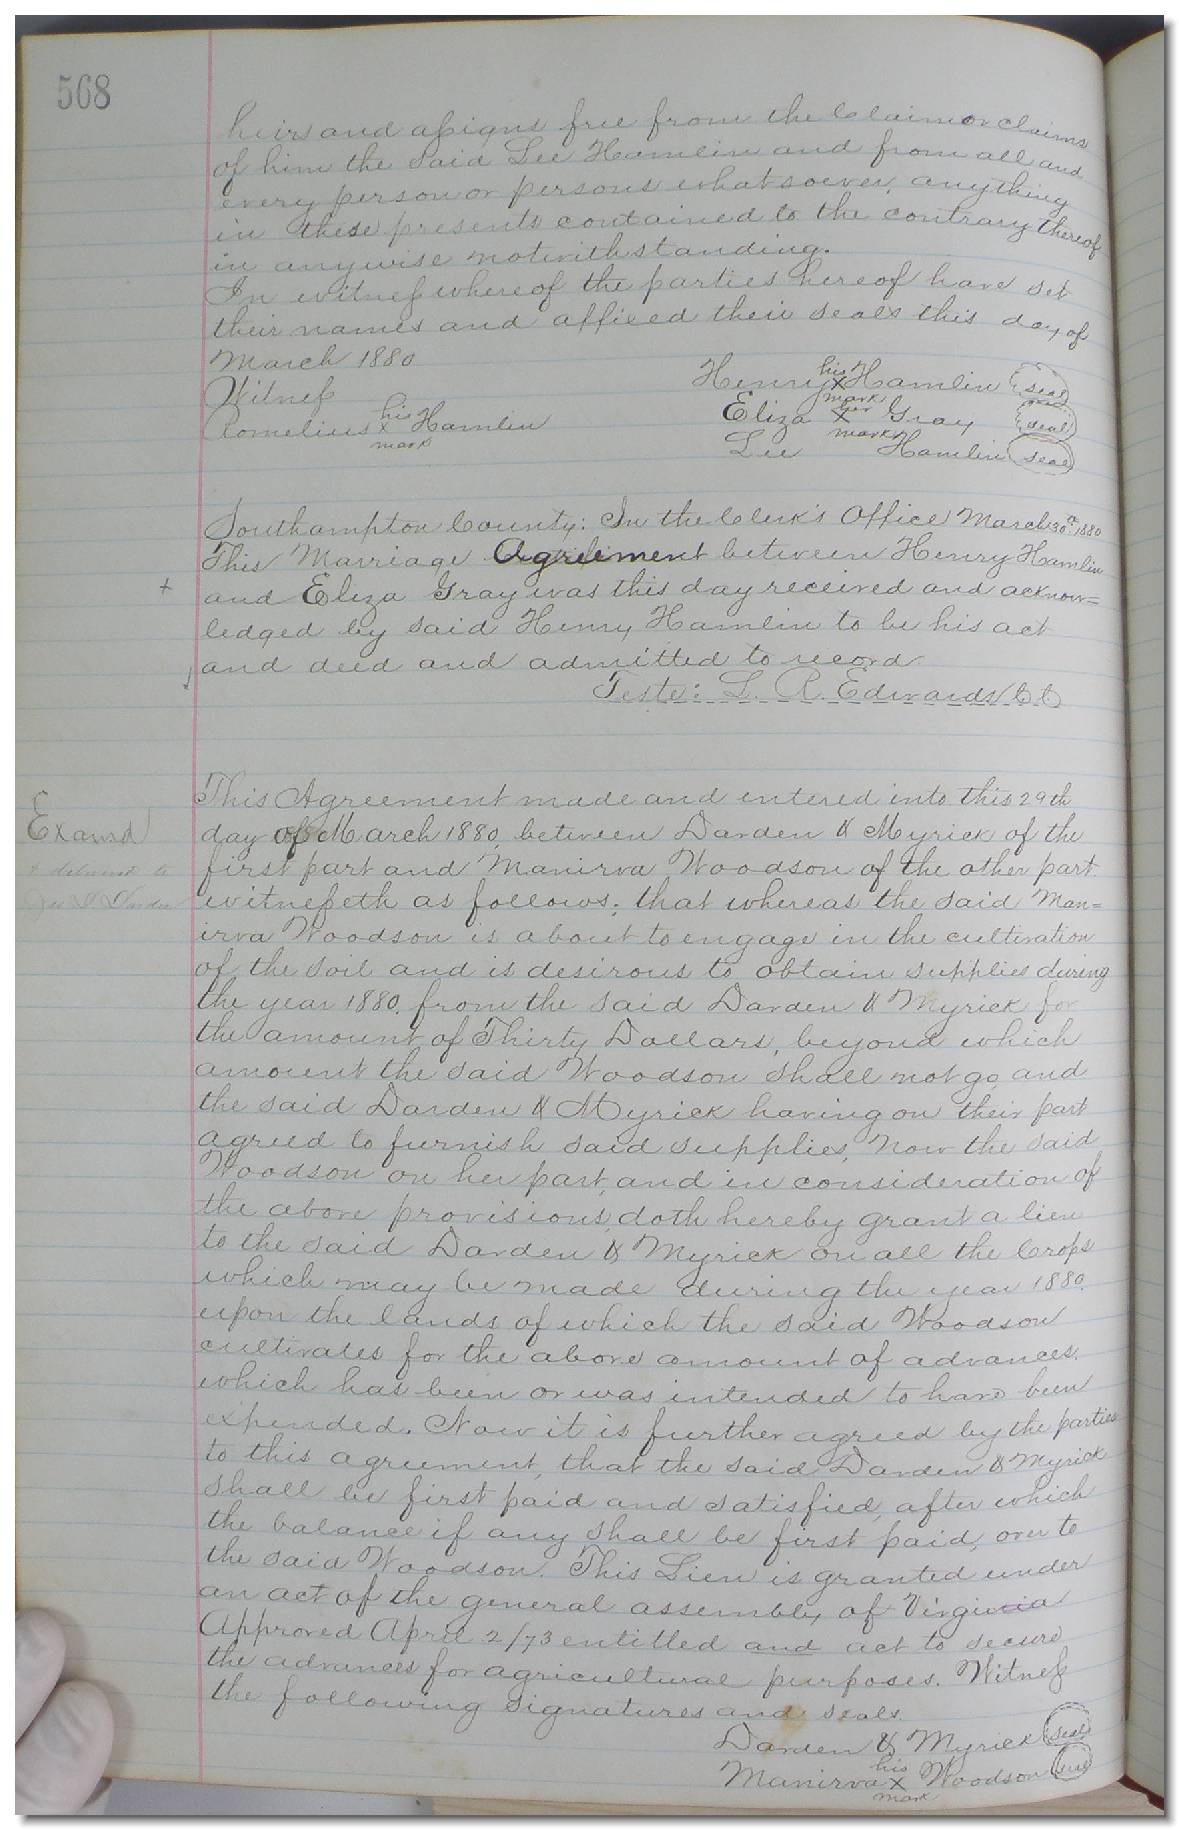 568
heirs and assigns free from the Claim or claims
of him the said Lee Hamlin and from all and
every person or persons whatsoever, anything
in these presents contained to the contrary thereof
in anywise notwithstanding.
In witness whereof the parties hereof have set
their names and affixed their seals this day of
March 1880
Witness
Cornelius his X mark Hamlin
Henry his X mark Hamlin seal
Eliza her X mark Gray seal
Lee Hamlin seal
Southampton County: In the Clerk's Office March 30th 1880
This Marriage Agreement between Henry Hamlin
+ and Eliza Gray was this day received and acknow=
ledged by said Henry Hamlin to be his act
and deed and admitted to record
Teste: L. R. Edwards CC
Examd
& delivered to
Darden
This Agreement made and entered into this 29th
day of March 1880, between Darden & Myrick of the
first part and Manirva Woodson of the other part
witnesseth as follows; that whereas the said Man=
irva Woodson is about to engage in the cultivation
of the soil and is desirous to obtain supplies during
the year 1880. from the said Darden & Myrick for
the amount of Thirty Dollars, beyond which
amount the said Woodson shall not go, and
the said Darden & Myrick having on their part
agreed to furnish said supplies, Now the said
Woodson on her part, and in consideration of
the above provisions, doth hereby grant a lien
to the said Darden & Myrick on all the Crops
which may be made during the year 1880.
upon the lands of which the said Woodson
cultivates for the above amount of advances.
which has been or was intended to have been
expended. Now it is further agreed by the parties
to this agreement, that the said Darden & Myrick
shall be first paid and satisfied, after which
the balance if any shall be first paid, over to
the said Woodson. This Lien is granted under
an act of the general assembly of Virginia
Approved April 2/73 entitled and act to secure
the advances for agricultural purposes. Witness
the following signatures and seals.
Darden & Myrick seal
Manirva his X mark Woodson seal